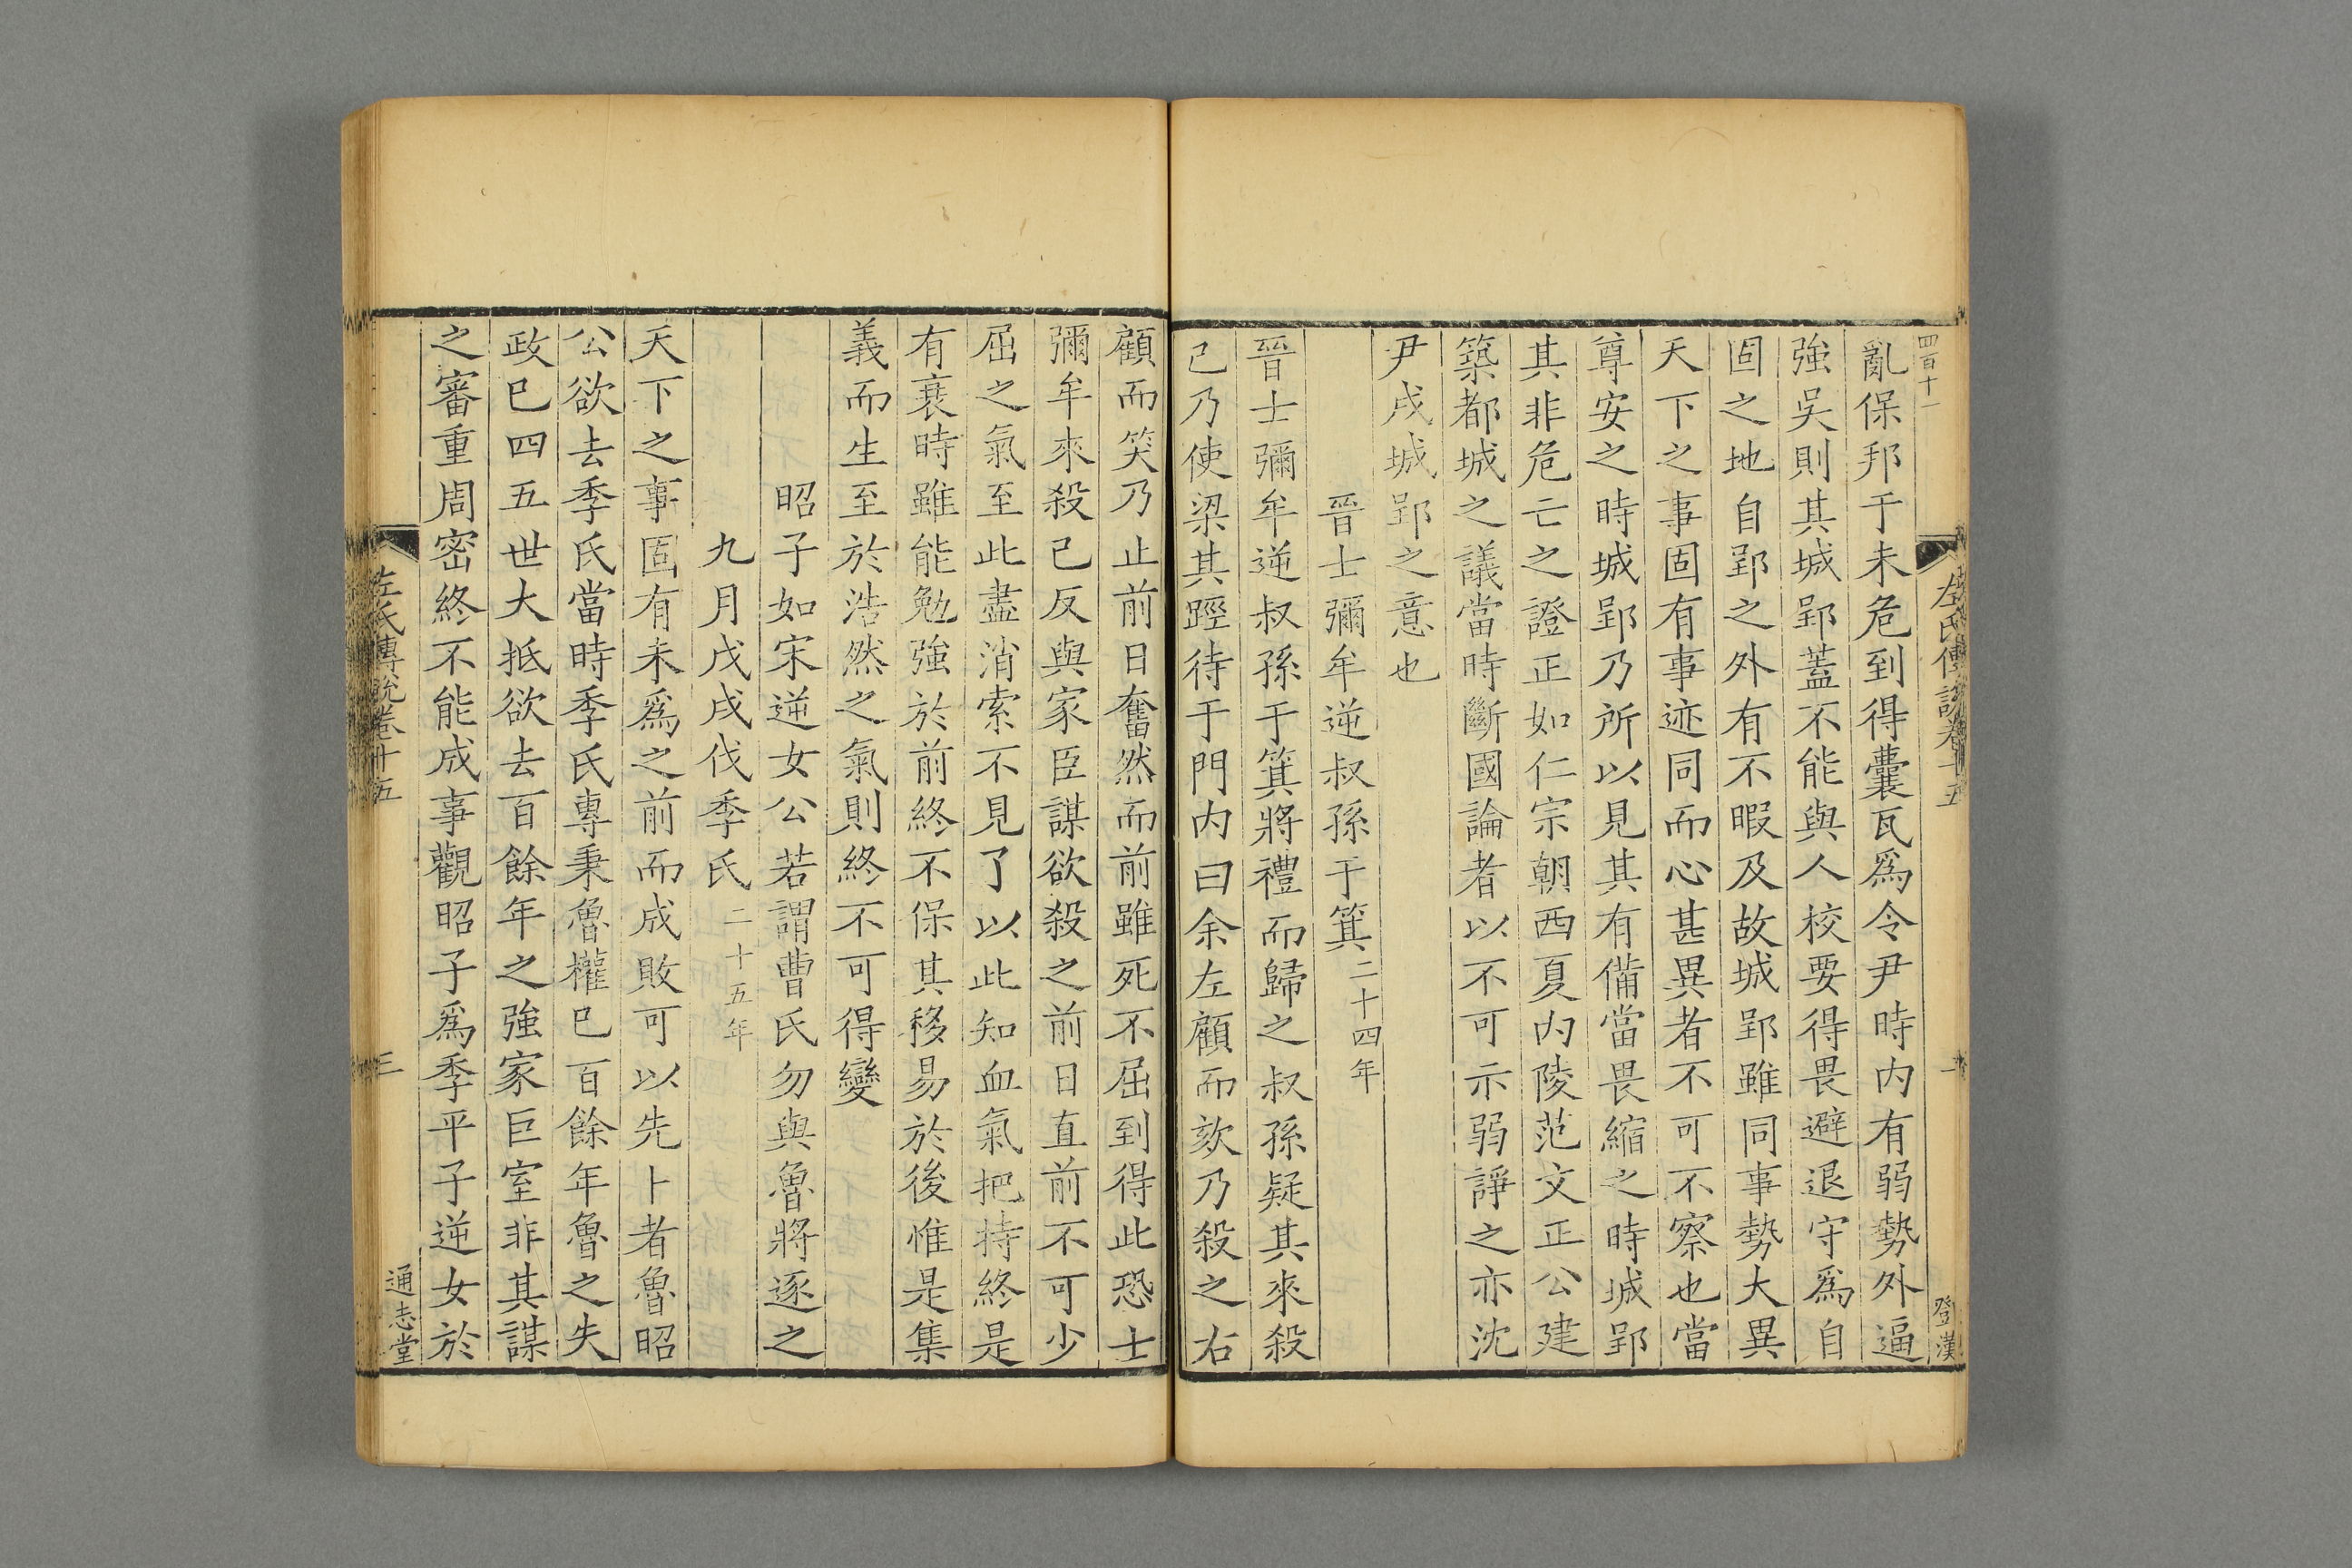 四百十一
左氏傳說卷十五
登漢
亂保邦于未危到得囊瓦爲令尹時内有弱勢外逼
強吳則其城郢蓋不能與人校要得畏避退守爲自
固之地自郢之外有不暇及故城郢雖同事勢大異
天下之事固有事迹同而心甚異者不可不察也當
尊安之時城郢乃所以見其有備當畏縮之時城郢
其非危亡之證正如仁宗朝西夏内陵范文正公建
築都城之議當時斷國論者以不可示弱諍之亦沈
尹戌城郢之意也
晉士彌牟逆叔孫于箕二十四年
晉士彌牟逆叔孫于箕將禮而歸之叔孫疑其來殺
己乃使梁其踁待于門内曰余左顧而欬乃殺之右
顧而笑乃止前日奮然而前雖死不屈到得此恐士
彌牟來殺己反與家臣謀欲殺之前日直前不可少
屈之氣至此盡消索不見了以此知血氣把持終是
有衰時雖能勉強於前終不保其移易於後惟是集
義而生至於浩然之氣則終不可得變
昭子如宋逆女公若謂曹氏勿與魯將逐之
九月戊戌伐季氏二十五年
天下之事固有未爲之前而成敗可以先卜者魯昭
公欲去季氏當時季氏專秉魯權已百餘年魯之失
政已四五世大抵欲去百餘年之強家巨室非其謀
之審重周密終不能成事觀昭子爲季平子逆女於
左氏傳說卷十五
三
通志堂